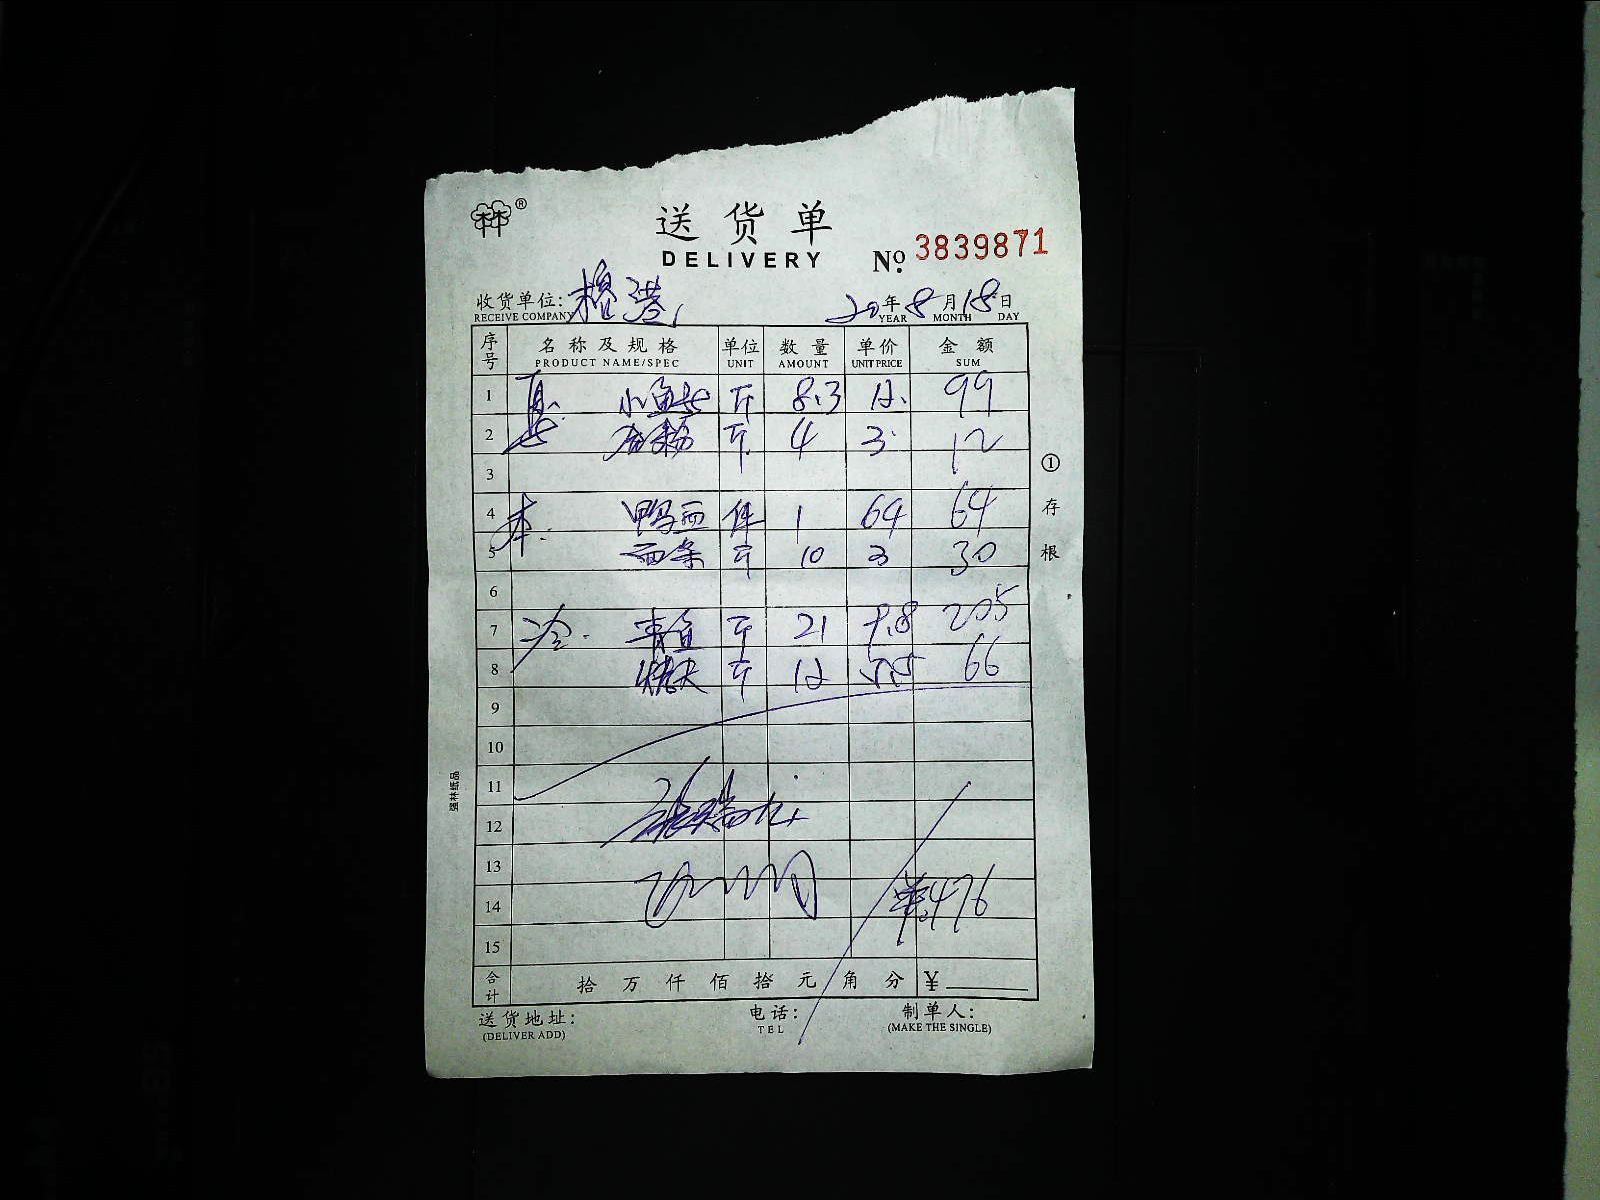 林®
送货单
DELIVERY
No. 3839871
收货单位: 榕港
RECEIVE COMPANY
20年8月18日
YEAR MONTH DAY
序号 名称及规格 单位 数量 单价 金额
PRODUCT NAME/SPEC UNIT AMOUNT UNIT PRICE SUM
1 小鱼 斤 8.3 12. 99
2 斤 4 3 12
3
4 本. 鸭血 件 1 64 64
5 面条 斤 10 3 30
6
7 冷. 青鱼 斤 21 9.8 205
8 斤 12 5.5 66
9
10
11
12
13
14 单. 476
15
合计 拾万仟佰拾元角分 ¥
送货地址: 电话: 制单人:
(DELIVER ADD) TEL (MAKE THE SINGLE)
①存根
强林纸品